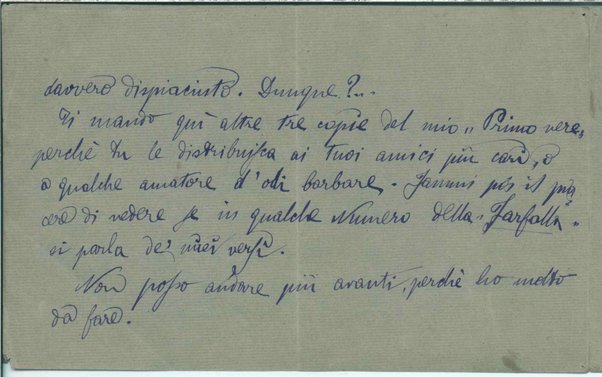 davvero dispiaciuto. Dunque?..
Ti mando quì altre tre copie del mio „Primo vere„
perchè tu le distribuisca ai tuoi amici più cari, o
a qualche amatore d'odi barbare. Fammi poi il pia
cere di vedere se in qualche Numero della „Farfalla„
si parla de' miei versi.
Non posso andare più avanti, perchè ho molto
da fare.